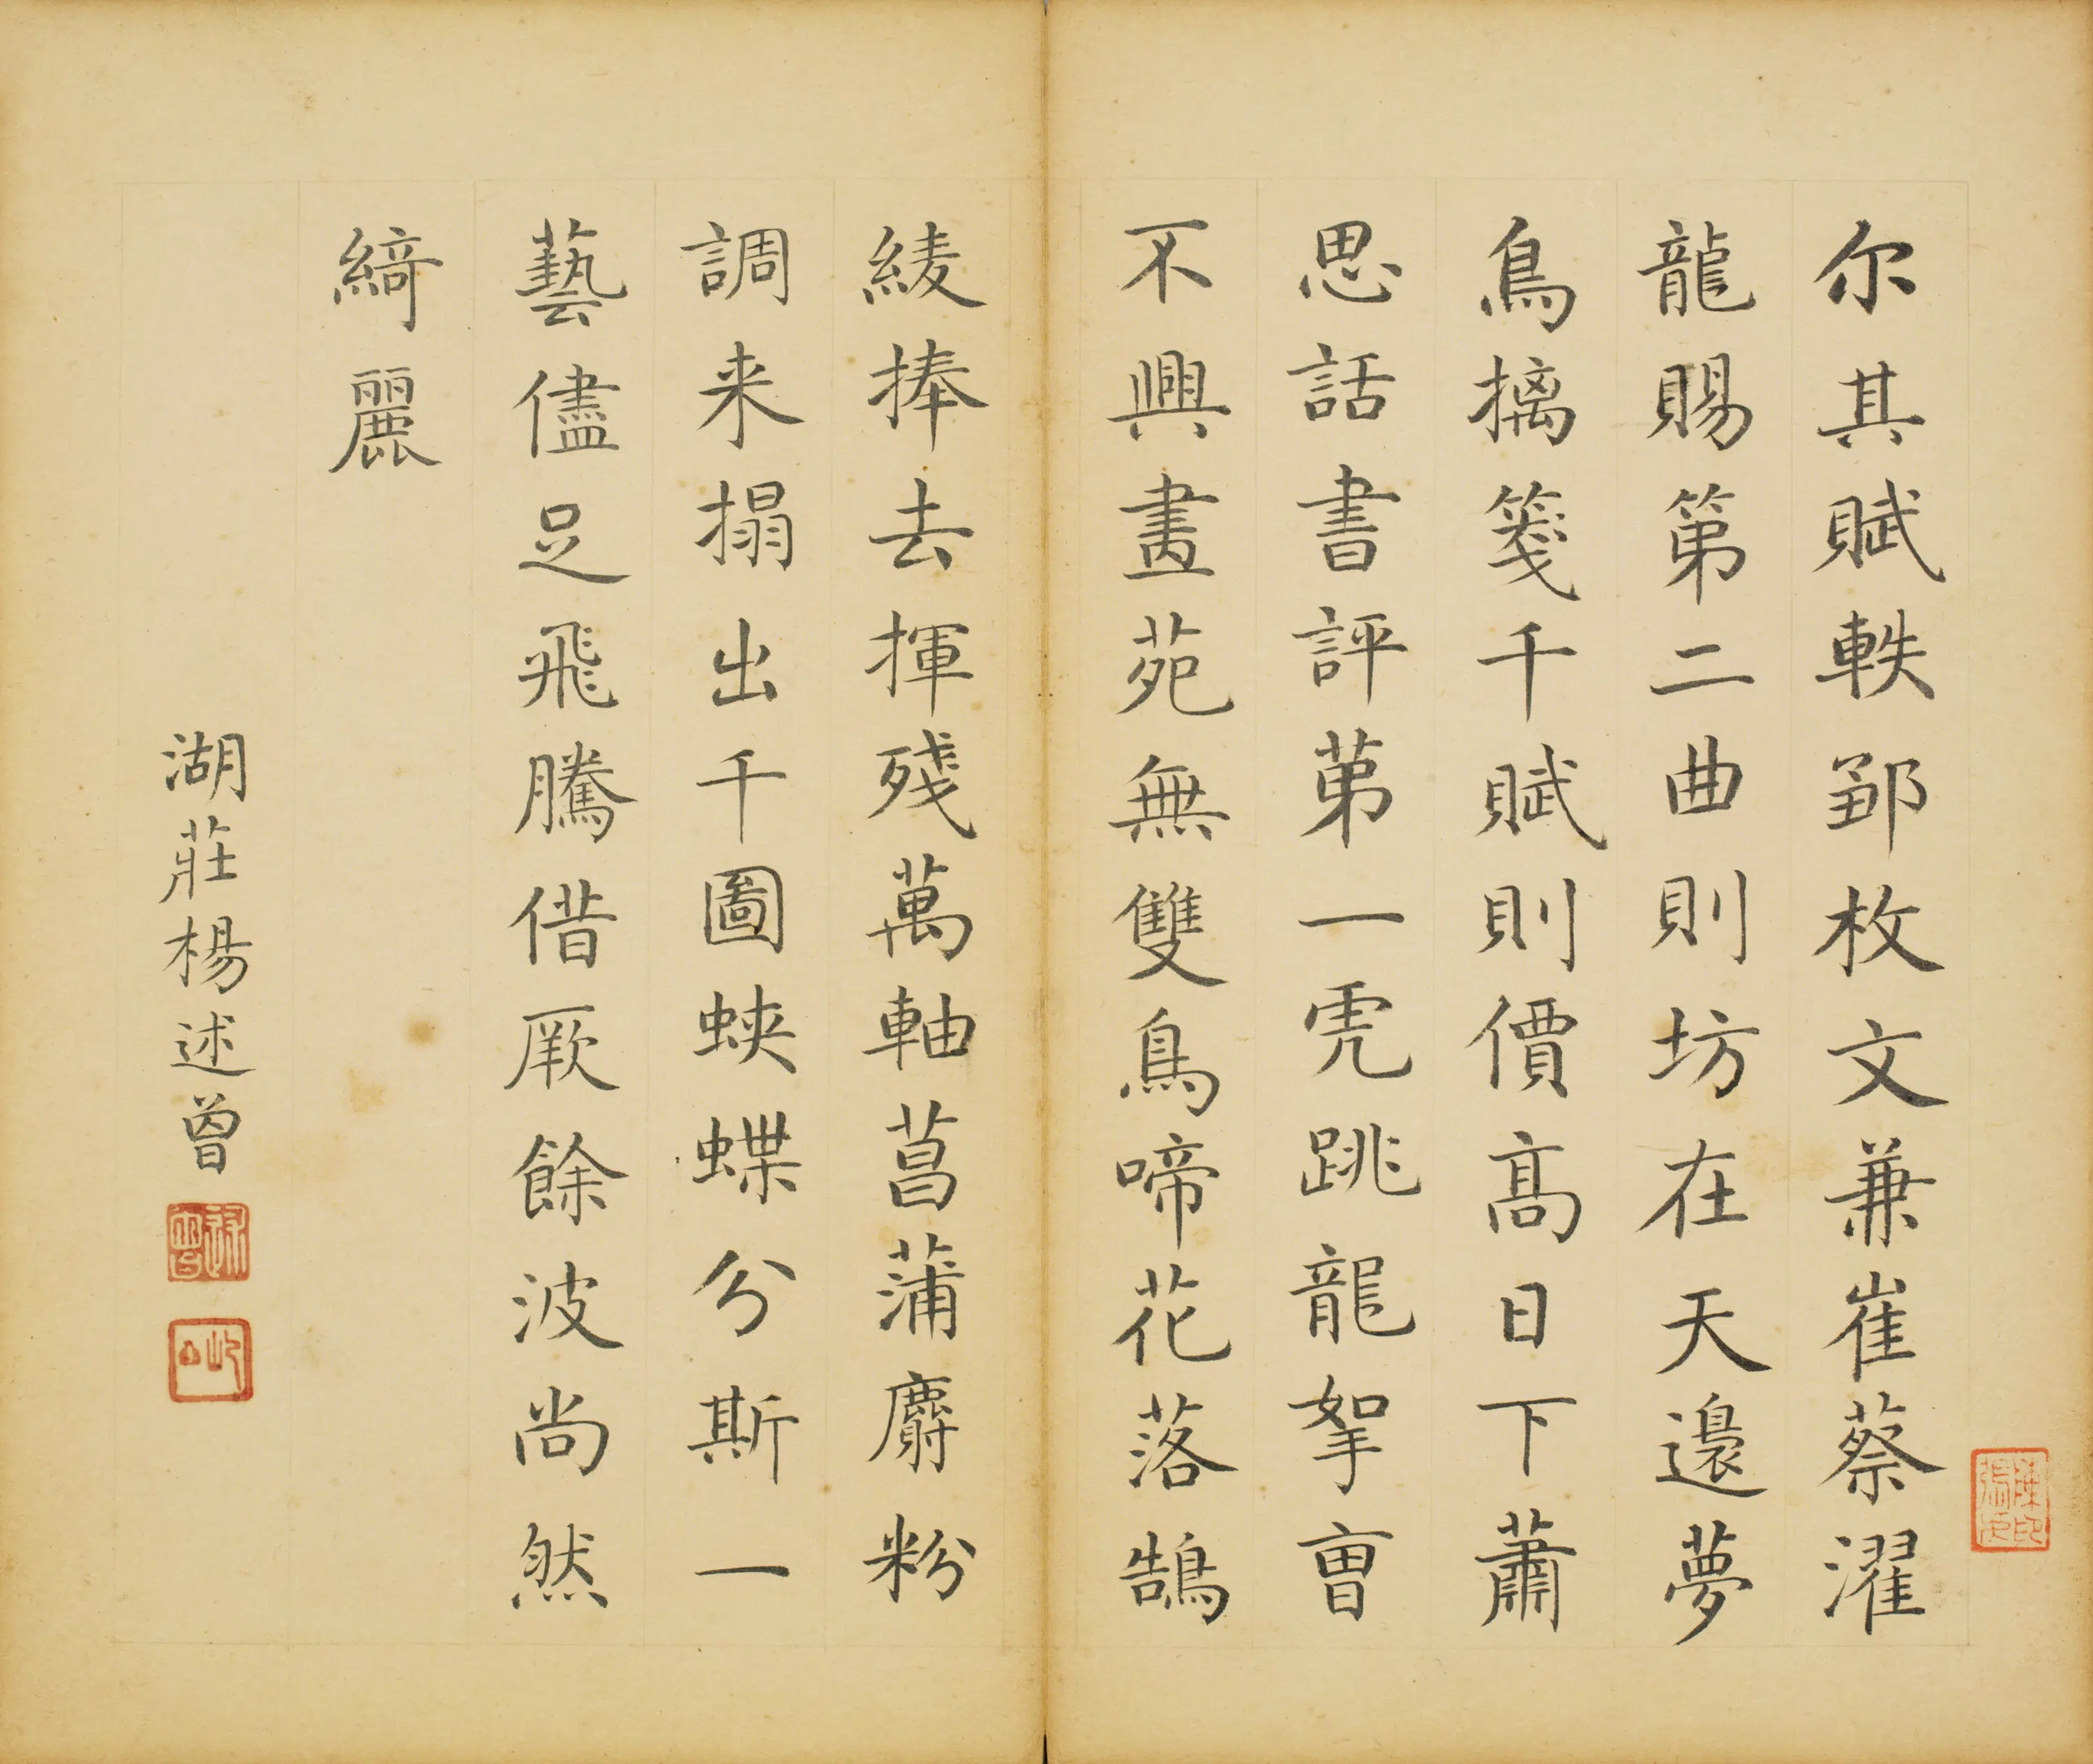 尔其賦軼鄒枚文兼崔蔡濯
龍賜第二曲則坊在天邊夢
鳥摛箋千賦則價高日下蕭
思話書評第一虎跳龍拏曹
不興畫苑無雙鳥啼花落鵠
綾捧去揮殘萬軸菖蒲麝粉
調来搨出千圖蛺蝶兮斯一
藝儘足飛騰借厥餘波尚然
綺麗
湖莊楊述曾